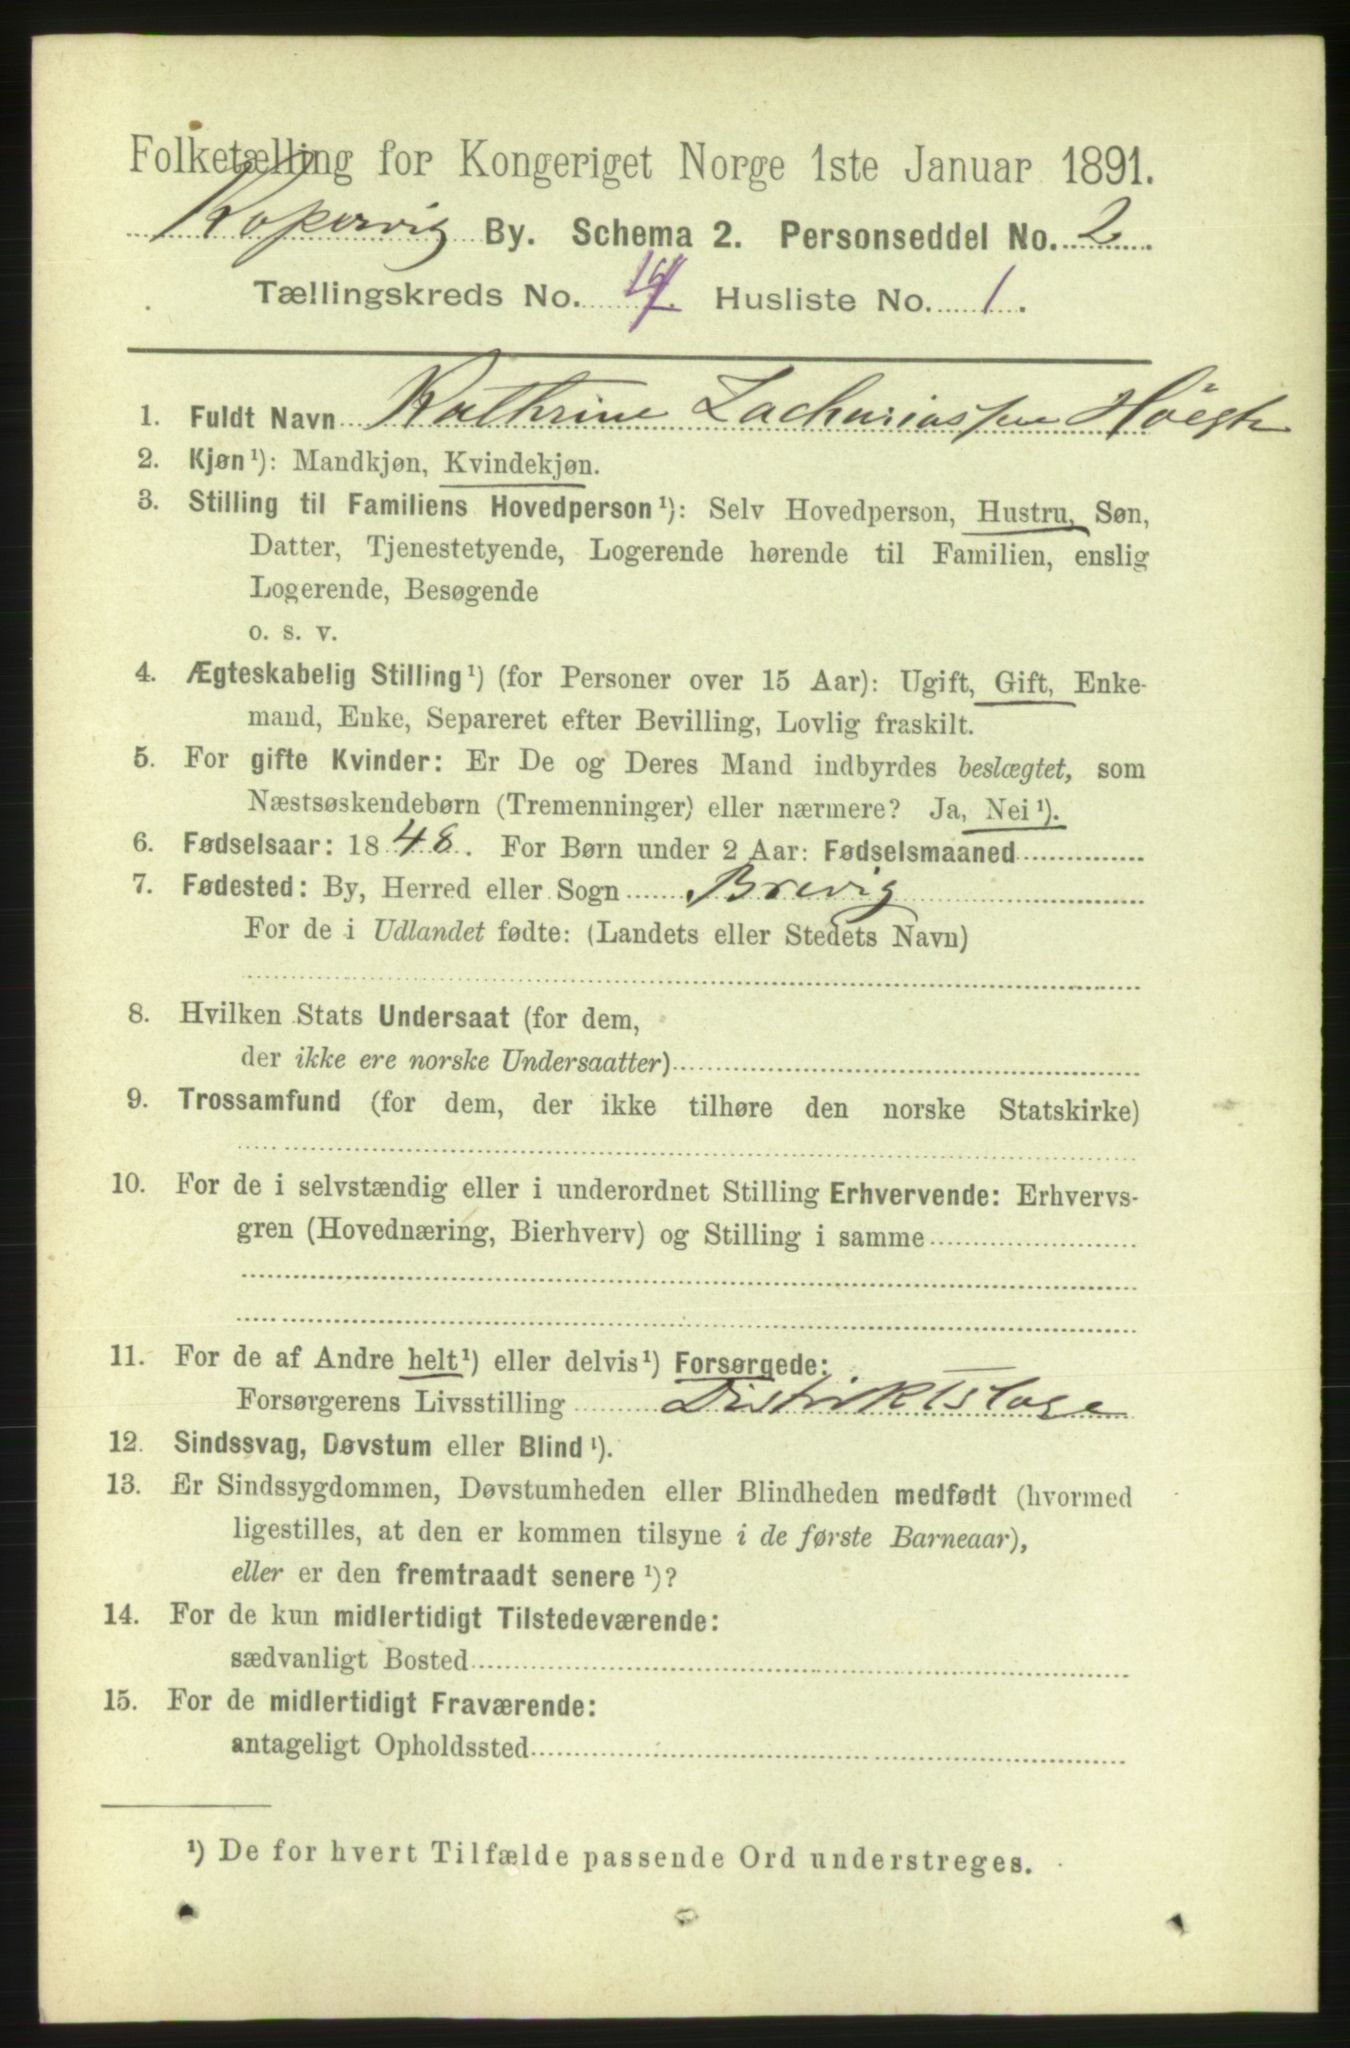 Folketælling for Kongeriget Norge 1ste Januar 1891.
Kopervig By. Schema 2. Personseddel No. 2.
Tællingskreds No. Husliste No. 1.
1. Fuldt Navn Kathrine Zachariassen Höegh
2. Kjøn ¹): Mandkjøn, Kvindekjøn.
3. Stilling til Familiens Hovedperson ¹): Selv Hovedperson, Hustru, Søn,
Datter, Tjenestetyende, Logerende hørende til Familien, enslig
Logerende, Besøgende
o. s. v.
4. Ægteskabelig Stilling ¹) (for Personer over 15 Aar): Ugift, Gift, Enke-
mand, Enke, Separeret efter Bevilling, Lovlig fraskilt.
5. For gifte Kvinder: Er De og Deres Mand indbyrdes beslægtet, som
Næstsøskendebørn (Tremenninger) eller nærmere? Ja, Nei ¹).
6. Fødselsaar: 1848. For Børn under 2 Aar: Fødselsmaaned
7. Fødested: By, Herred eller Sogn Brevig
For de i Udlandet fødte: (Landets eller Stedets Navn)
8. Hvilken Stats Undersaat (for dem,
der ikke ere norske Undersaatter)
9. Trossamfund (for dem, der ikke tilhøre den norske Statskirke)
10. For de i selvstændig eller i underordnet Stilling Erhvervende: Erhvervs-
gren (Hovednæring, Bierhverv) og Stilling i samme
11. For de af Andre helt ¹) eller delvis ¹) Forsørgede:
Forsørgerens Livsstilling Distriktslæge
12. Sindssvag, Døvstum eller Blind ¹).
13. Er Sindssygdommen, Døvstumheden eller Blindheden medfødt (hvormed
ligestilles, at den er kommen tilsyne i de første Barneaar),
eller er den fremtraadt senere ¹)?
14. For de kun midlertidigt Tilstedeværende:
sædvanligt Bosted
15. For de midlertidigt Fraværende:
antageligt Opholdssted
¹) De for hvert Tilfælde passende Ord understreges.